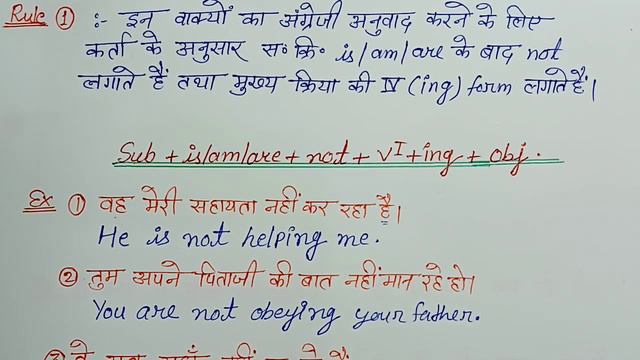 Rule ① :- इन वाक्यों का अंग्रेजी अनुवाद करने के लिए
कर्ता के अनुसार स॰ क्रि॰ is/am/are के बाद not
लगाते हैं तथा मुख्य क्रिया की IV (ing) form लगाते हैं।
Sub + is/am/are + not + V I + ing + obj.
Ex ① वह मेरी सहायता नहीं कर रहा है।
He is not helping me.
② तुम अपने पिताजी की बात नहीं मान रहे हो।
You are not obeying your father.